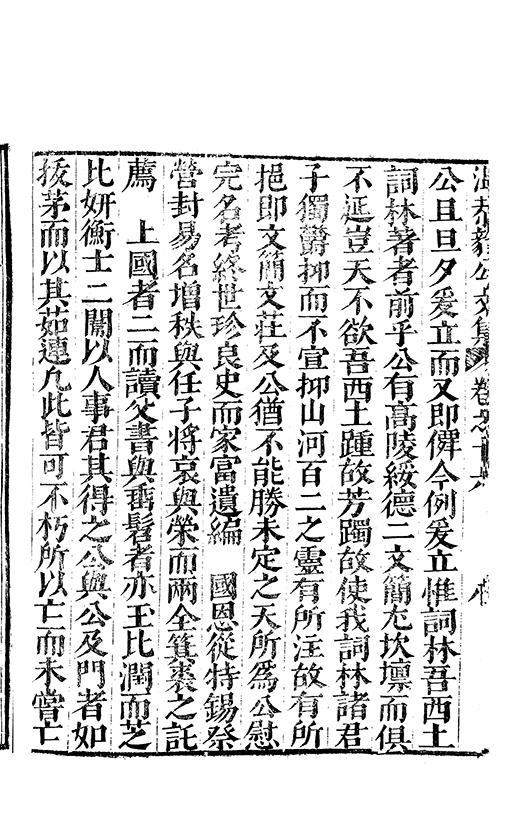 溫恭毅公文集 卷之十六
公且旦夕爰立而又即俾令例爰立惟詞林吾西土
詞林著者前乎公有高陵綏德二文簡尤坎壈而俱
不延豈天不欲吾西土踵故芳躅故使我詞林諸君
子獨鬱抑而不宣抑山河百二之靈有所注故有所
挹即文簡文莊及公猶不能勝未定之天所為公慰
完名考終世珍良史而家富遺編 國恩從特錫祭
營封易名增秩與任子將哀與榮而兩全箕裘之託
薦 上國者二而讀父書與齠髫者亦玉比潤而芝
比妍衡士二闈以人事君其得之公與公及門者如
拔茅而以其茹連凢此皆可不朽所以亡而未嘗亡